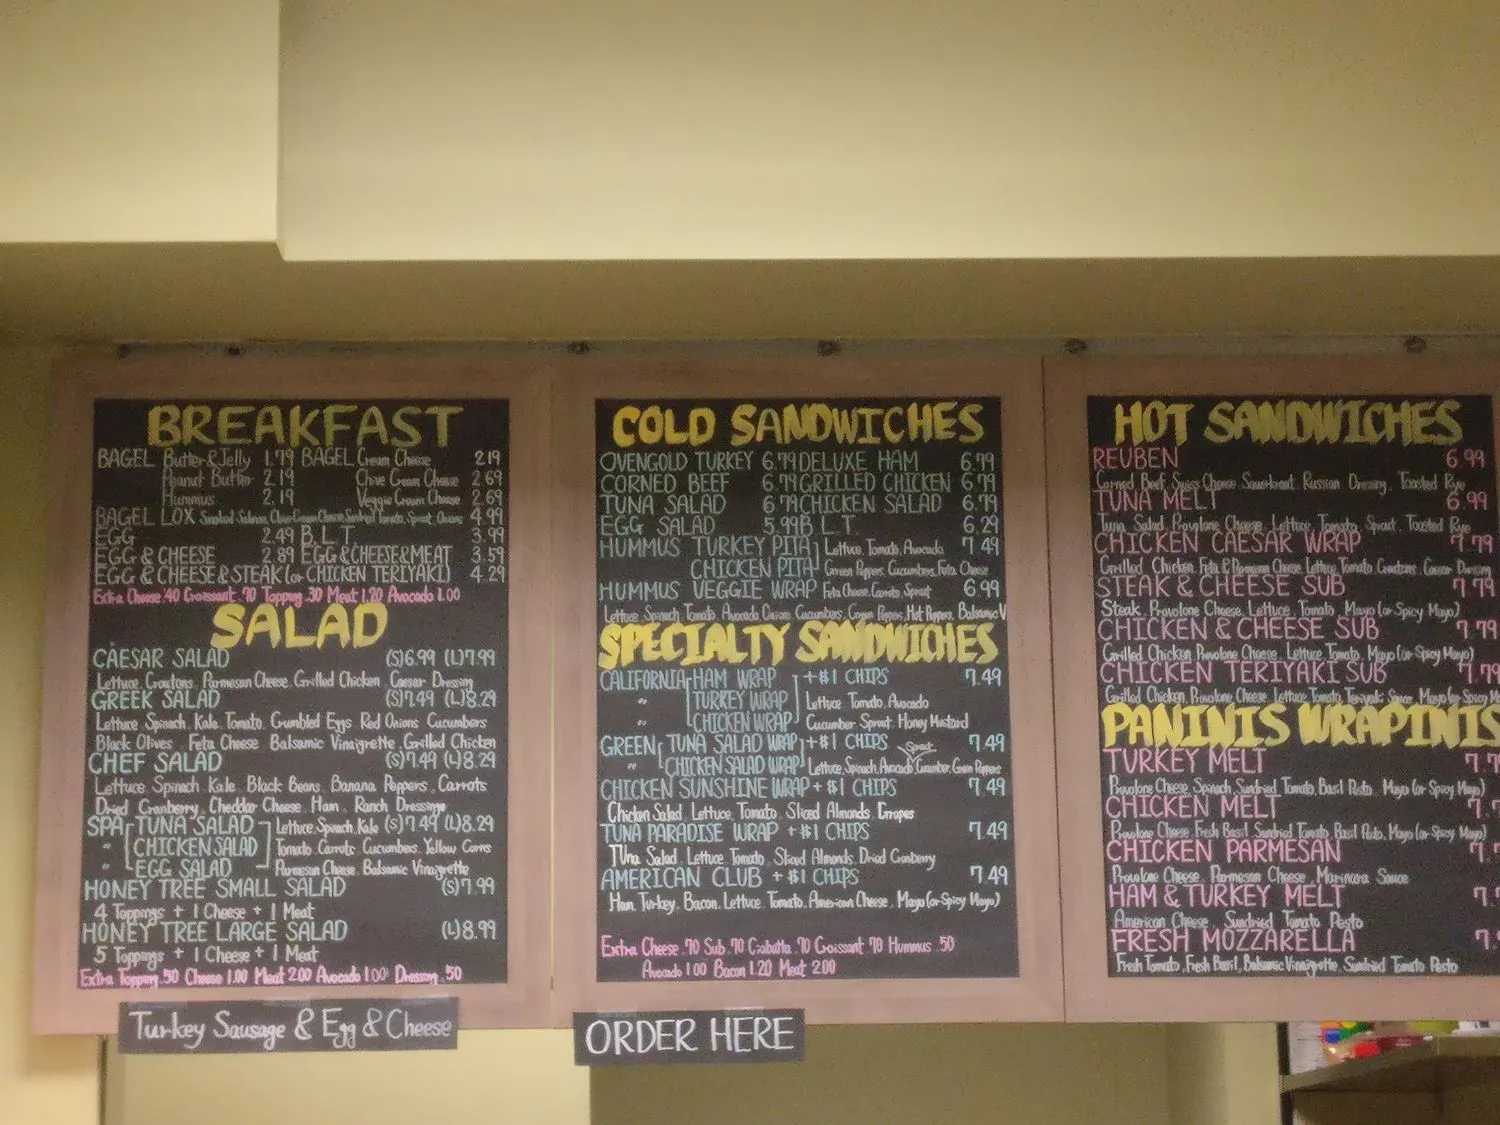 BREAKFAST
BAGEL Butter & Jelly 1.79 BAGEL Cream Cheese 2.19
Peanut Butter 2.19 Chive Cream Cheese 2.69
Hummus 2.19 Veggie Cream Cheese 2.69
BAGEL LOX Tomato, Sprout, Onions 4.99
EGG 2.49 B.L.T. 3.99
EGG & CHEESE 2.89 EGG & CHEESE & MEAT 3.59
EGG & CHEESE & STEAK (or CHICKEN TERIYAKI) 4.29
Extra Cheese .40 Croissant .70 Topping .30 Meat 1.20 Avocado 1.00
SALAD
CAESAR SALAD (S)6.99 (L)7.99
Lettuce, Croutons, Parmesan Cheese, Grilled Chicken, Caesar Dressing
GREEK SALAD (S)7.49 (L)8.29
Lettuce Spinach, Kale, Tomato, Crumbled Eggs Red Onions Cucumbers
Black Olives, Feta Cheese Balsamic Vinaigrette, Grilled Chicken
CHEF SALAD (S)7.49 (L)8.29
Lettuce, Spinach, Kale, Black Beans, Banana Peppers, Carrots
Dried Cranberry, Cheddar Cheese, Ham, Ranch Dressing
SPA TUNA SALAD Lettuce, Spinach, Kale (S)7.49 (L)8.29
" CHICKEN SALAD Tomato, Carrots, Cucumbers, Yellow Corns
" EGG SALAD Parmesan Cheese, Balsamic Vinaigrette
HONEY TREE SMALL SALAD (S)7.99
4 Toppings + 1 Cheese + 1 Meat
HONEY TREE LARGE SALAD (L)8.99
5 Toppings + 1 Cheese + 1 Meat
Extra Topping .50 Cheese 1.00 Meat 2.00 Avocado 1.00 Dressing .50
Turkey Sausage & Egg & Cheese
COLD SANDWICHES
OVENGOLD TURKEY 6.79 DELUXE HAM 6.79
CORNED BEEF 6.79 GRILLED CHICKEN 6.79
TUNA SALAD 6.79 CHICKEN SALAD 6.79
EGG SALAD 5.99 B.L.T. 6.29
HUMMUS TURKEY PITA Lettuce, Tomato, Avocado 7.49
CHICKEN PITA Green Peppers, Cucumbers, Feta Cheese
HUMMUS VEGGIE WRAP Feta Cheese, Carrots, Sprout 6.99
Lettuce, Spinach, Tomato, Avocado, Onions, Cucumbers, Green Peppers, Hot Peppers, Balsamic V
SPECIALTY SANDWICHES
CALIFORNIA HAM WRAP +$1 CHIPS 7.49
" TURKEY WRAP Lettuce, Tomato, Avocado
" CHICKEN WRAP Cucumber, Sprout, Honey Mustard
GREEN TUNA SALAD WRAP +$1 CHIPS Sprout 7.49
" CHICKEN SALAD WRAP Lettuce, Spinach, Avocado, Cucumber, Green Peppers
CHICKEN SUNSHINE WRAP +$1 CHIPS 7.49
Chicken Salad, Lettuce, Tomato, Sliced Almonds, Grapes
TUNA PARADISE WRAP +$1 CHIPS 7.49
Tuna Salad, Lettuce, Tomato, Sliced Almonds, Dried Cranberry
AMERICAN CLUB +$1 CHIPS 7.49
Ham, Turkey, Bacon, Lettuce, Tomato, American Cheese, Mayo (or Spicy Mayo)
Extra Cheese .70 Sub .70 Ciabatta .70 Croissant .70 Hummus .50
Avocado 1.00 Bacon 1.20 Meat 2.00
ORDER HERE
HOT SANDWICHES
REUBEN 6.99
Corned Beef, Swiss Cheese, Sauerkraut, Russian Dressing, Toasted Rye
TUNA MELT 6.99
Tuna Salad, Provolone Cheese, Lettuce, Tomato, Sprout, Toasted Rye
CHICKEN CAESAR WRAP 7.79
Grilled Chicken, Feta & Parmesan Cheese, Lettuce, Tomato, Croutons, Caesar Dressing
STEAK & CHEESE SUB 7.79
Steak, Provolone Cheese, Lettuce, Tomato, Mayo (or Spicy Mayo)
CHICKEN & CHEESE SUB 7.79
Grilled Chicken, Provolone Cheese, Lettuce, Tomato, Mayo (or Spicy Mayo)
CHICKEN TERIYAKI SUB 7.79
Grilled Chicken, Provolone Cheese, Lettuce, Tomato, Teriyaki Sauce, Mayo (or Spicy M
PANINIS WRAPINIS
TURKEY MELT 7.7
Provolone Cheese, Spinach, Sundried Tomato, Basil Pesto, Mayo (or Spicy Mayo)
CHICKEN MELT 7.
Provolone Cheese, Fresh Basil, Sundried Tomato, Basil Pesto, Mayo (or Spicy Mayo)
CHICKEN PARMESAN 7.
Provolone Cheese, Parmesan Cheese, Marinara Sauce
HAM & TURKEY MELT 7.
American Cheese, Sundried Tomato Pesto
FRESH MOZZARELLA 7.
Fresh Tomato, Fresh Basil, Balsamic Vinaigrette, Sundried Tomato Pesto